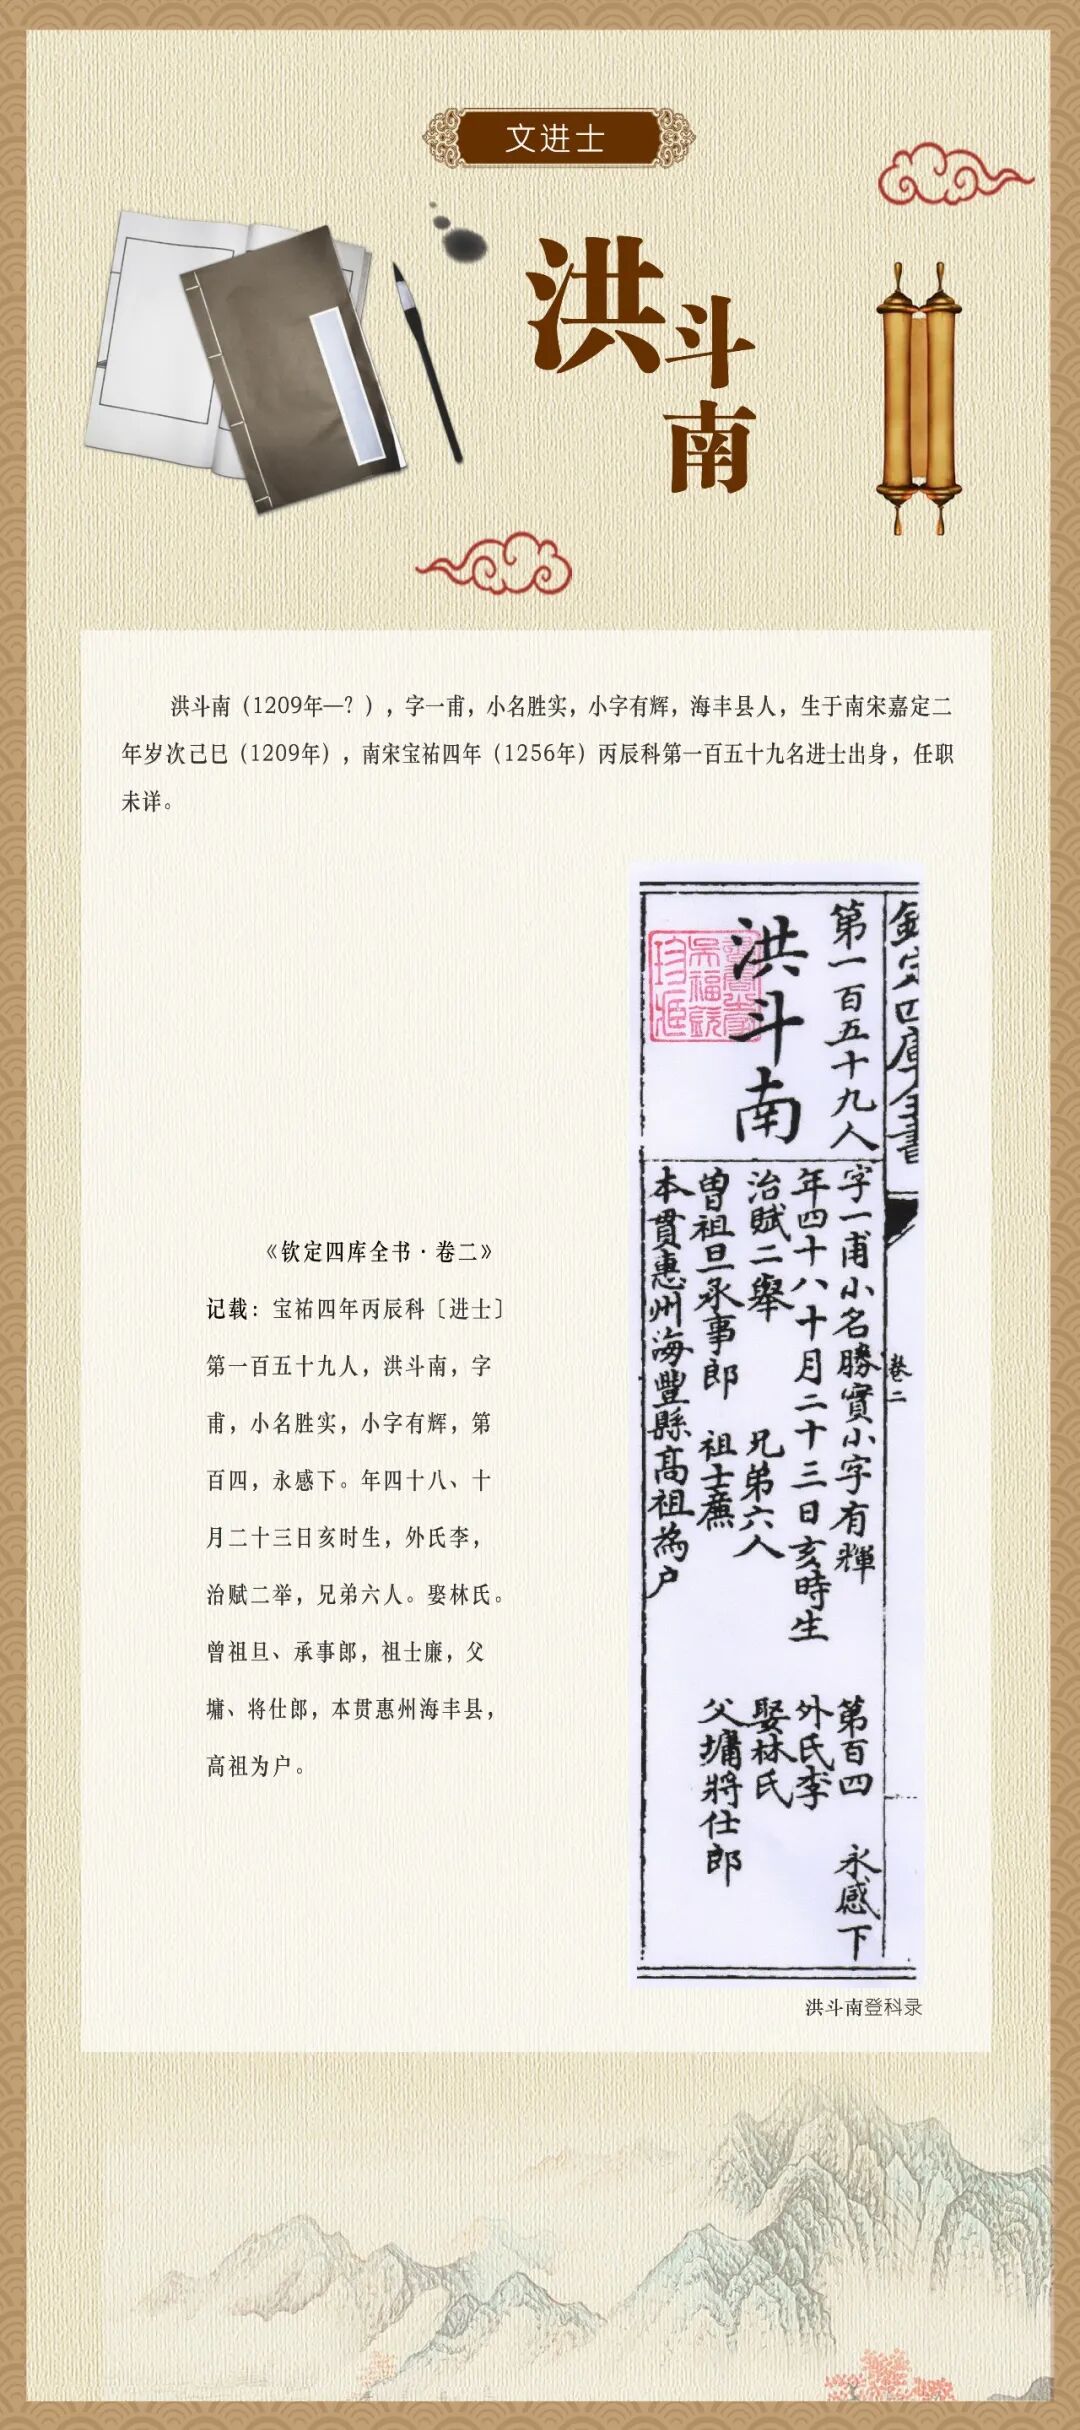 文进士
洪斗南
洪斗南（1209年—？），字一甫，小名胜实，小字有辉，海丰县人，生于南宋嘉定二
年岁次己巳（1209年），南宋宝祐四年（1256年）丙辰科第一百五十九名进士出身，任职
未详。
《钦定四库全书·卷二》
记载：宝祐四年丙辰科〔进士〕
第一百五十九人，洪斗南，字
甫，小名胜实，小字有辉，第
百四，永感下。年四十八、十
月二十三日亥时生，外氏李，
治赋二举，兄弟六人。娶林氏。
曾祖旦、承事郎，祖士廉，父
墉、将仕郎，本贯惠州海丰县，
高祖为户。
欽定四庫全書
卷二
第一百五十九人
洪斗南
字一甫小名勝實小字有輝 第百四 永感下
年四十八十月二十三日亥時生 外氏李
治賦二舉 兄弟六人 娶林氏
曽祖旦承事郎 祖士廉 父墉將仕郎
本貫惠州海豐縣高祖為户
洪斗南登科录